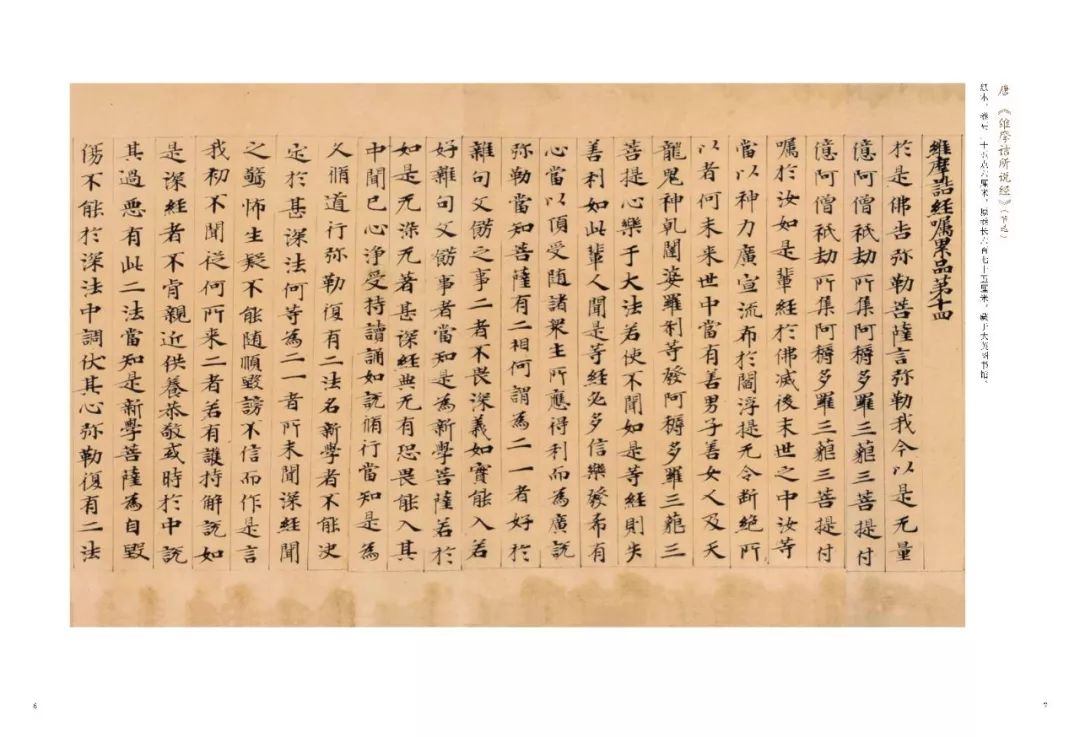 唐《维摩诘所说经》(节选)
纸本，二十五点六厘米，原卷长六百七十五厘米，藏于大英图书馆。
維摩詰經囑累品第十四
於是佛告弥勒菩薩言弥勒我今以是无量
億阿僧祇劫所集阿耨多羅三藐三菩提付
億阿僧祇劫所集阿耨多羅三藐三菩提付
囑於汝如是輩經於佛滅後末世之中汝等
當以神力廣宣流布於閻浮提无令断絕所
以者何未来世中當有善男子善女人及天
龍鬼神乹闥婆羅刹等發阿耨多羅三藐三
菩提心樂于大法若使不聞如是等經則失
善利如此輩人聞是等經必多信樂發希有
心當以頂受随諸衆生所應得利而為廣説
弥勒當知菩薩有二相何謂為二一者好於
雜句文餝之事二者不畏深義如實能入若
好雜句文餝事者當知是為新學菩薩若於
如是无染无著甚深經典无有恐畏能入其
中聞已心淨受持讀誦如説脩行當知是為
久脩道行弥勒復有二法名新學者不能决
定於甚深法何等為二一者所未聞深經聞
之驚怖生疑不能随順毀謗不信而作是言
我初不聞從何所来二者若有護持解説如
是深經者不肯親近供養恭敬或時於中説
其過惡有此二法當知是新學菩薩為自毀
傷不能於深法中調伏其心弥勒復有二法
6
7